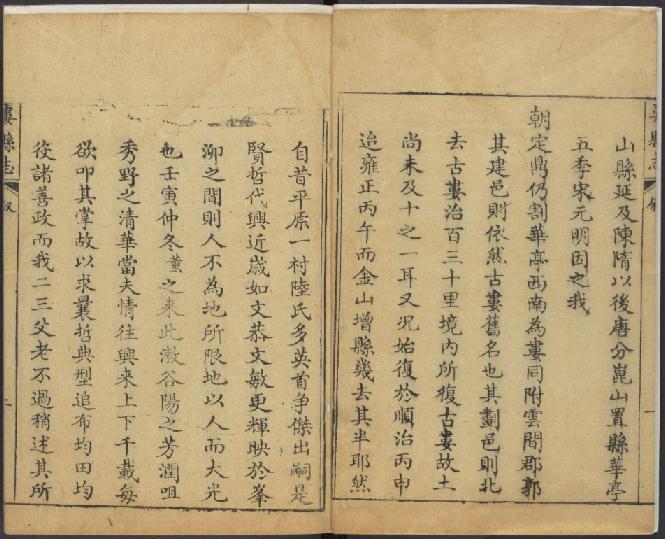 婁縣志
叙
一
山縣延及陳隋以後唐分崑山置縣華亭
五季宋元明因之我
朝定鼎仍割華亭西南為婁同附雲間郡郭
其建邑則依然古婁舊名也其劃邑則北
去古婁治百三十里境內所復古婁故土
尚未及十之一耳又況始復於順治丙申
迨雍正丙午而金山增縣幾去其半耶然
自昔平原一村陸氏多英首爭傑出嗣是
賢哲代興近歲如文恭文敏更輝映於峯
泖之間則人不為地所限地以人而大光
也壬寅仲冬董之來此漱谷陽之芳潤咀
秀野之清華當夫情往興來上下千載每
欲叩其掌故以求曩哲典型追布均田均
役諸善政而我二三父老不過稍述其所
婁縣志
叙
二